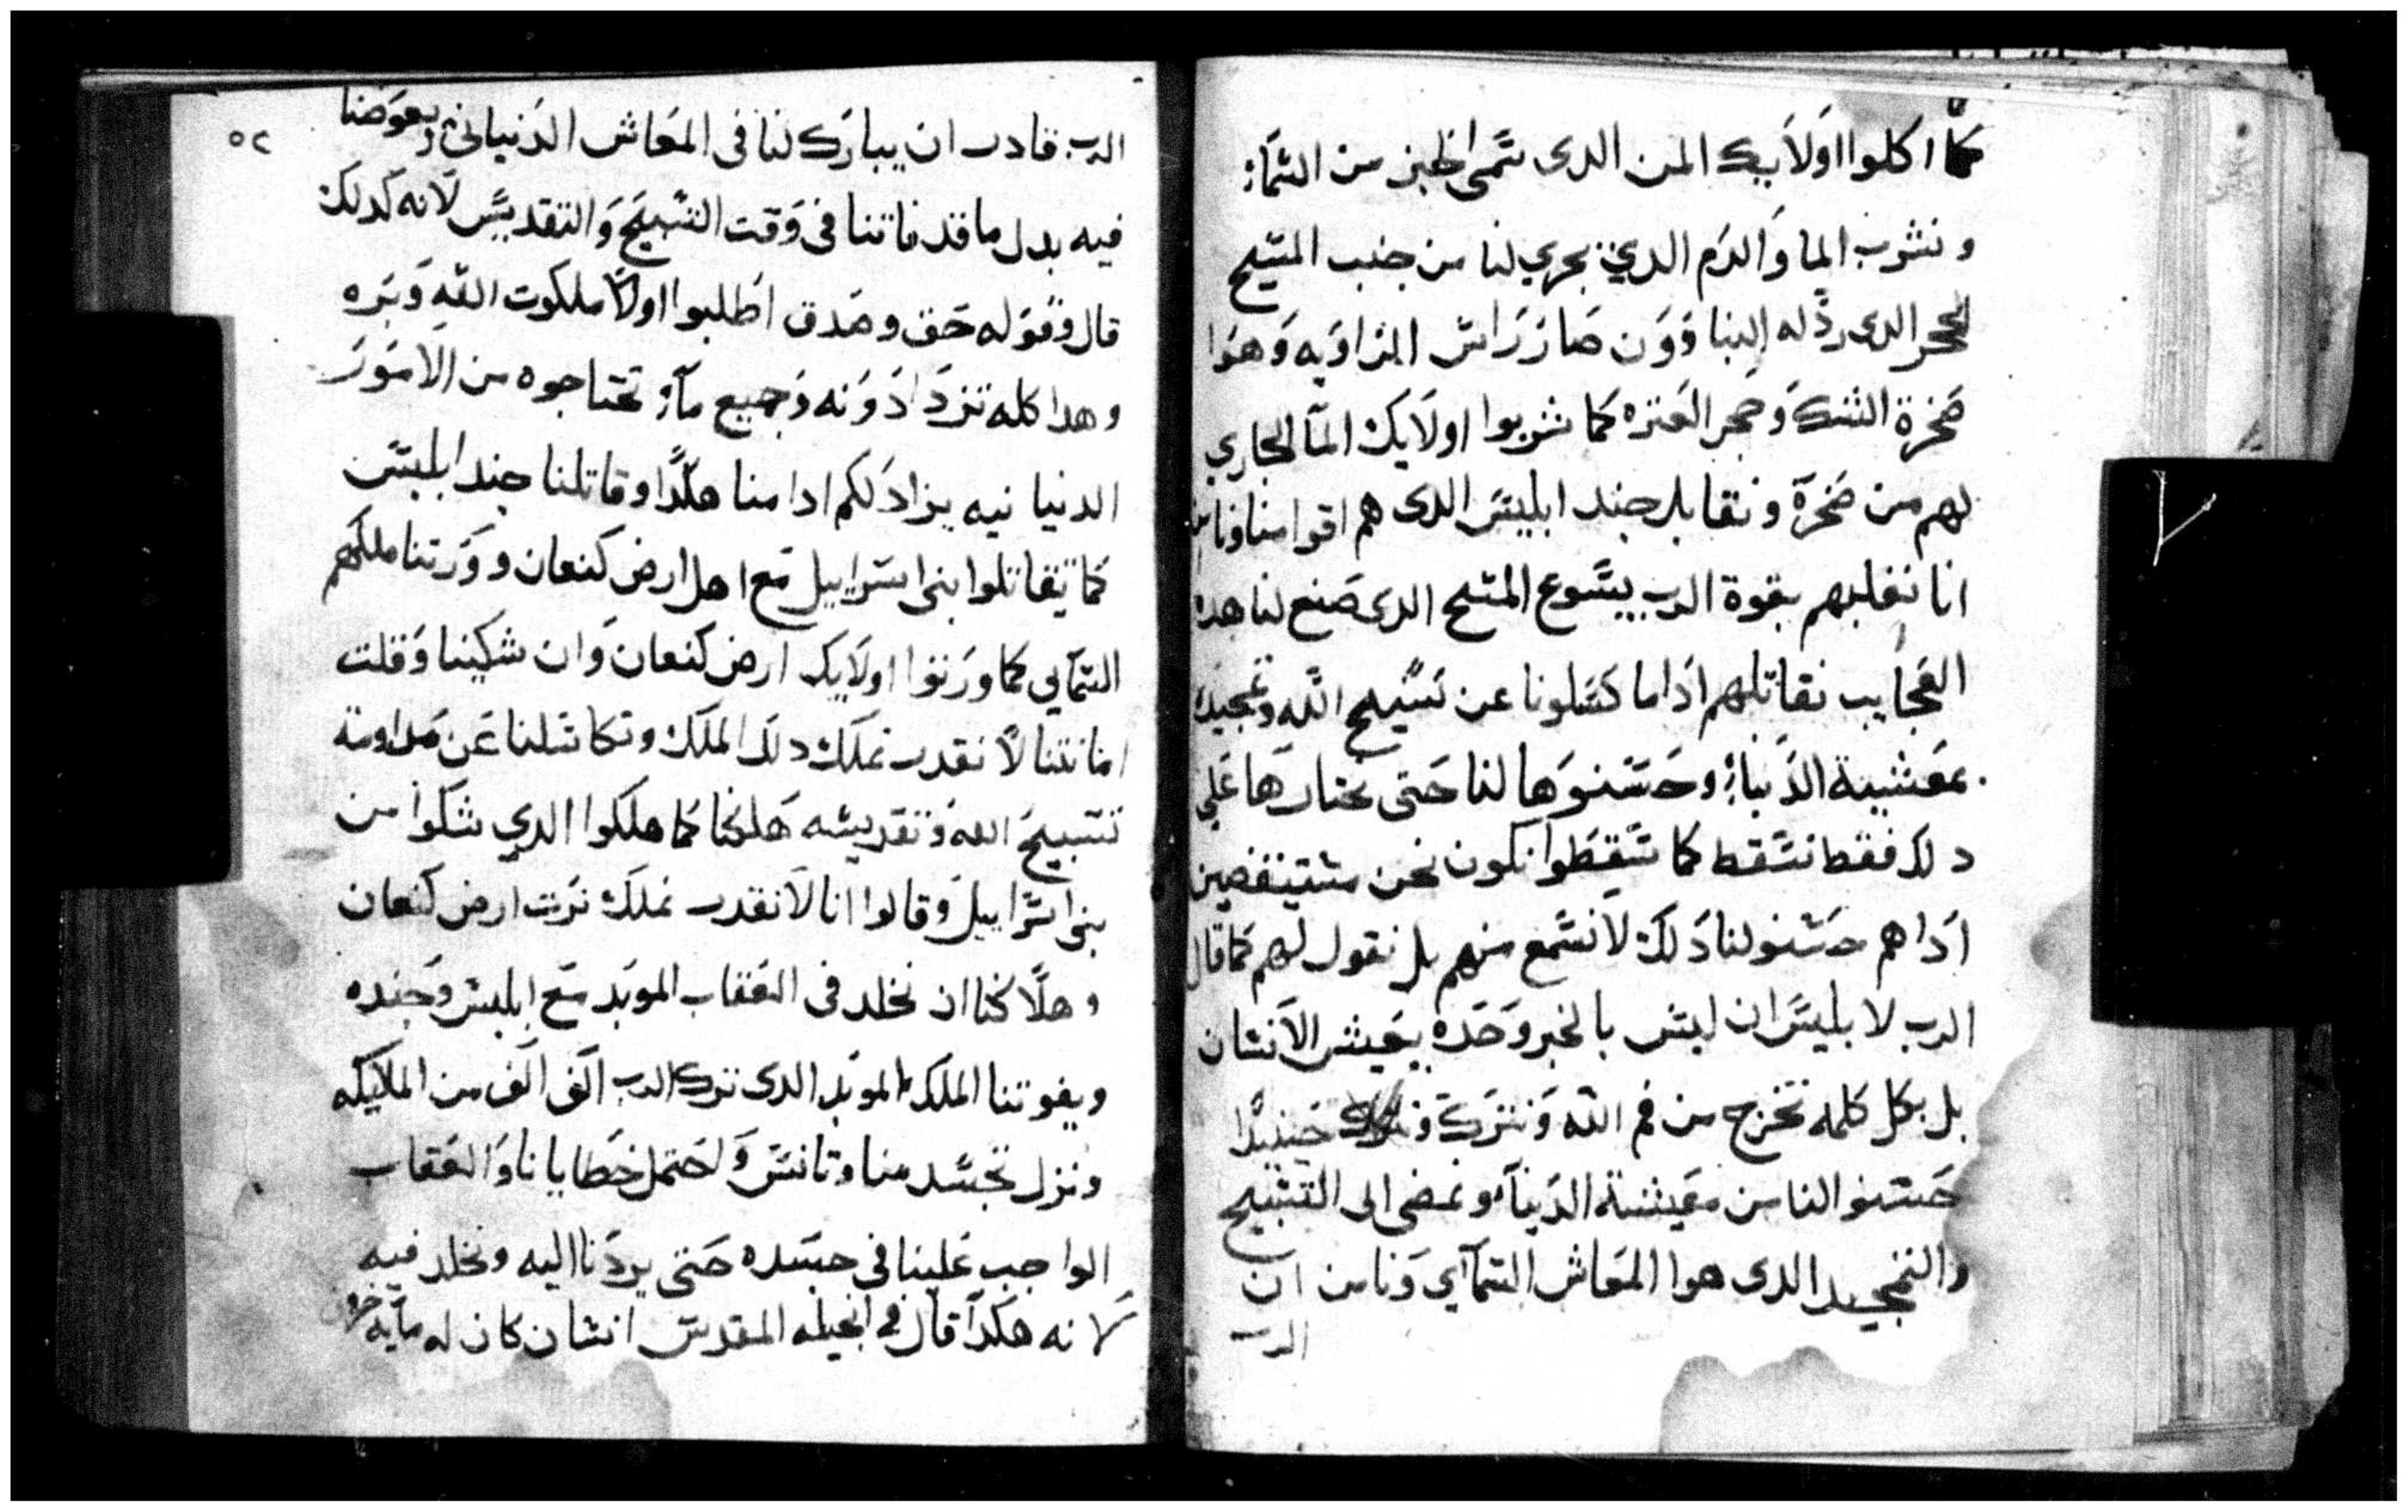 كما اكلوا اولايك المن الدى سمى الخبز من السماء
ونشرب الما والدم الدي يجري لنا من جنب المسيح
الحجر الدى رذله البنا وون صار راس الزاويه وهوا
صخرة الشك وحجر العتره كما شربوا اولايك الما الجاري
لهم من صخرة ونقابل جند ابليس الدى هم اقوا منا
انا نغلبهم بقوة الرب يسوع المسيح الدى صنع لنا هده
العجايب نقاتلهم اداما كسلونا عن تسبيح الله وتمجيده
بمعيشة الدنيا وحسنوها لنا حتى نختارها على
دلك فقط نسقط كما سقطوا نكون نحن مستيقضين
اداهم حسنو لنا دلك لا نسمع منهم بل نقول لهم كما قال
الرب لابليس ان ليس بالخبز وحده يعيش الانسان
بل بكل كلمه تخرج من فم الله ونترك حينيدا
حسنو النا من معيشة الدنيا ونمضى الى التسبيح
والتمجيد الدى هوا المعاش السماي ونامن ان
الرب
٥٢
الرب قادر ان يبارك لنا فى المعاش الدنياني ويعوضنا
فيه بدل ما قد فاتنا فى وقت التسبيح والتقديس لانه كدلك
قال وقوله حق وصدق اطلبوا اولا ملكوت الله وبره
وهدا كله تزدادونه وجميع ما تحتاجوه من الامور
الدنيا نيه يزاد لكم ادا منا هكدا وقاتلنا جند ابليس
كما تقاتلوا بنى اسراييل مع اهل ارض كنعان وورتنا ملكهم
السماي كما ورتوا اولايك ارض كنعان وان شكينا وقلت
امانتنا لا نقدر نملك دلك الملك وتكاسلنا عن مداومة
تسبيح الله وتقديسه هلكنا كما هلكوا الدي شكوا من
بنى اسراييل وقالوا انا لا نقدر نملك نرت ارض كنعان
وهلاكنا ان نخلد فى العقاب الموبد مع ابليس وجنده
ويفوتنا الملك الموبد الدى ترك الرب الف الف من الملايكه
ونزل تجسد منا وتانس واحتمل خطايانا والعقاب
الواجب علينا فى جسده حتى يردنا اليه ونخلد فيه
لانه هكدا قال في انجيله المقدس انسان كان له مايه خروف